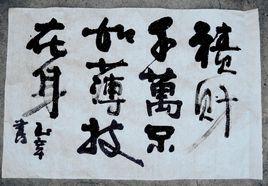 積財
千萬不
如薄技
在身
書